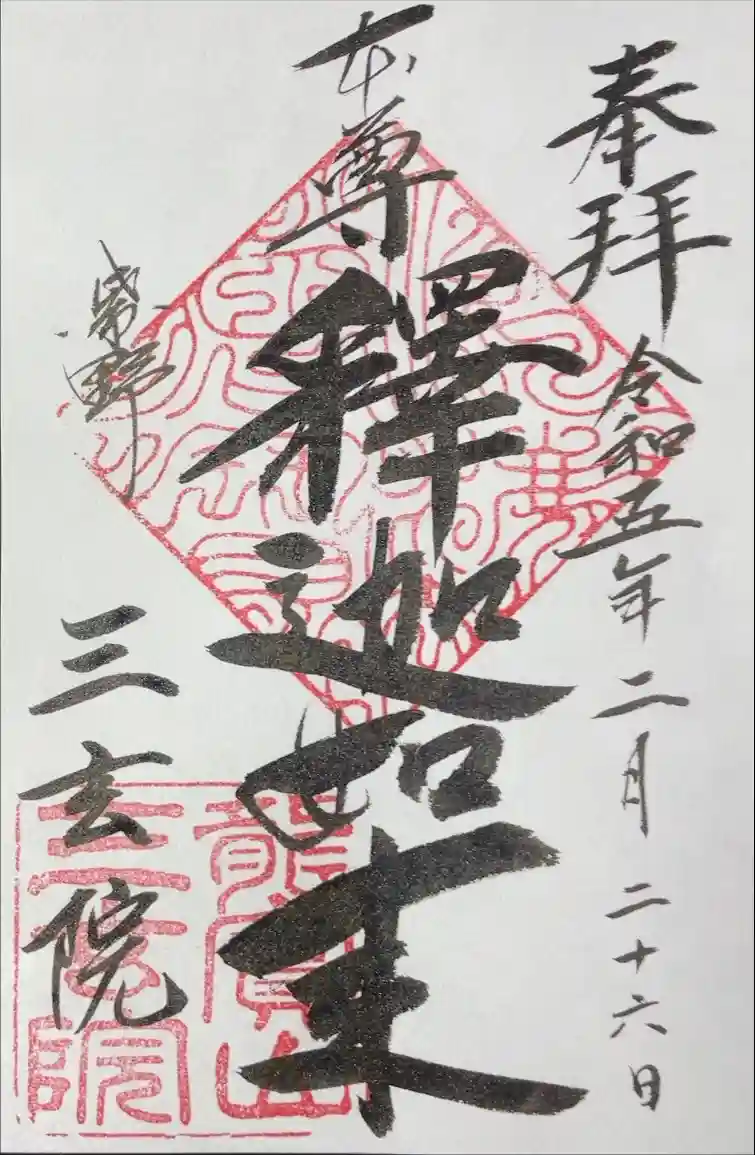 奉拝
令和五年二月二十六日
本尊
釋迦如来
紫野
三玄院
龍寳山
三玄院